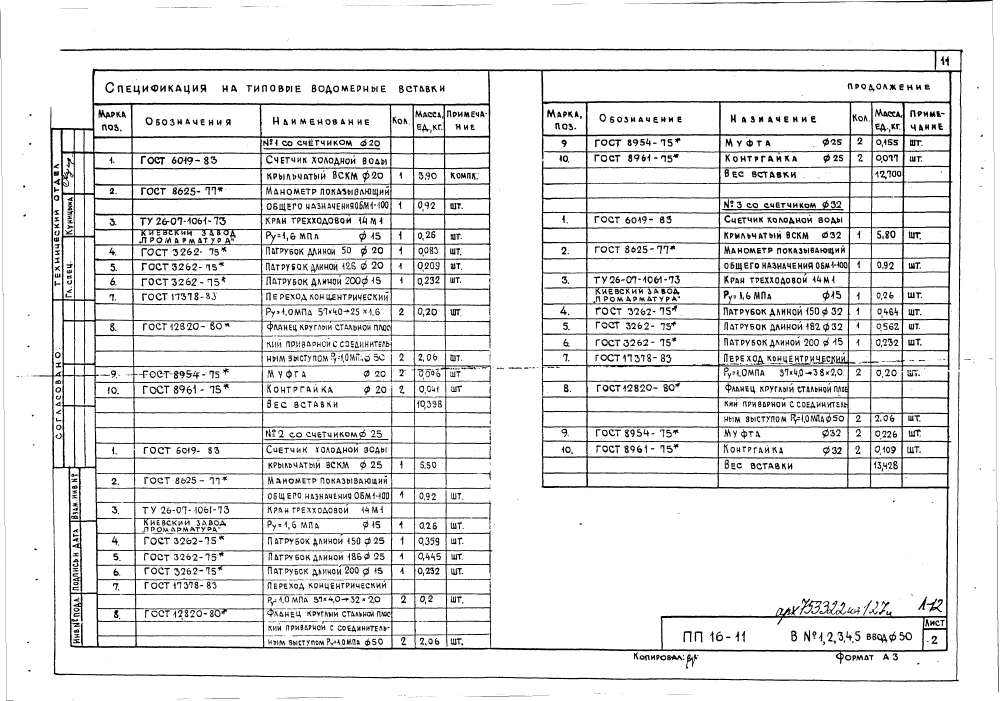 11
Спецификация на типовые водомерные вставки
Марка поз. Обозначения Наименование Кол. Масса, ед., кг. Примечание
№1 со счётчиком ф20
1. ГОСТ 6019-83 Счетчик холодной воды
крыльчатый ВСКМ ф20 1 3,90 компл.
2. ГОСТ 8625-77* Манометр показывающий
общего назначения ОБМ1-100 1 0,92 шт.
3. ТУ 26-07-1061-73 Кран трехходовой 14М1
Киевский завод „Промарматура" Ру=1,6 МПа ф15 1 0,26 шт.
4. ГОСТ 3262-75* Патрубок длиной 50 ф20 1 0,083 шт.
5. ГОСТ 3262-75* Патрубок длиной 126 ф20 1 0,209 шт.
6. ГОСТ 3262-75* Патрубок длиной 200 ф15 1 0,232 шт.
7. ГОСТ 17378-83 Переход концентрический
Ру=1,0 МПа 57×4,0→25×1,6 2 0,20 шт.
8. ГОСТ 12820-80* Фланец круглый стальной плос-
кий приварной с соединитель-
ным выступом Ру=1,0МПа, ф50 2 2,06 шт.
9. ГОСТ 8954-75* Муфта ф20 2 0,096 шт
10. ГОСТ 8961-75* Контргайка ф20 2 0,041 шт
Вес вставки 10,398
№2 со счетчиком ф25
1. ГОСТ 6019-83 Счетчик холодной воды
крыльчатый ВСКМ ф25 1 5,50
2. ГОСТ 8625-77* Манометр показывающий
общего назначения ОБМ1-100 1 0,92 шт.
3. ТУ 26-07-1061-73 Кран трехходовой 14М1
Киевский завод „Промарматура" Ру=1,6 МПа ф15 1 0,26 шт.
4. ГОСТ 3262-75* Патрубок длиной 150 ф25 1 0,359 шт.
5. ГОСТ 3262-75* Патрубок длиной 186 ф25 1 0,445 шт.
6. ГОСТ 3262-75* Патрубок длиной 200 ф15 1 0,232 шт.
7. ГОСТ 17378-83 Переход концентрический
Ру=1,0 МПа 57×4,0→32×2,0 2 0,2 шт.
8. ГОСТ 12820-80* Фланец круглый стальной плос-
кий приварной с соединитель-
ным выступом Ру=1,0МПа ф50 2 2,06 шт.
продолжение
Марка, поз. Обозначение Назначение Кол. Масса, ед., кг. Примечание
9 ГОСТ 8954-75* Муфта ф25 2 0,155 шт.
10. ГОСТ 8961-75* Контргайка ф25 2 0,077 шт.
Вес вставки 12,700
№3 со счетчиком ф32
1. ГОСТ 6019-83 Счетчик холодной воды
крыльчатый ВСКМ ф32 1 5,80 шт.
2. ГОСТ 8625-77* Манометр показывающий
общего назначения ОБМ1-100 1 0,92 шт.
3. ТУ 26-07-1061-73 Кран трехходовой 14М1
Киевский завод „Промарматура" Ру=1,6 МПа ф15 1 0,26 шт.
4. ГОСТ 3262-75* Патрубок длиной 150 ф32 1 0,464 шт.
5. ГОСТ 3262-75* Патрубок длиной 182 ф32 1 0,562 шт.
6. ГОСТ 3262-75* Патрубок длиной 200 ф15 1 0,232 шт.
7. ГОСТ 17378-83 Переход концентрический
Ру=1,0МПа 57×4,0→38×2,0 2 0,20 шт.
8. ГОСТ 12820-80* Фланец круглый стальной плос-
кий приварной с соединитель-
ным выступом Ру=1,0МПа ф50 2 2.06 шт.
9. ГОСТ 8954-75* Муфта ф32 2 0,226 шт.
10. ГОСТ 8961-75* Контргайка ф32 2 0,109 шт.
Вес вставки 13,428
Технический отдел
Гл.спец. Куницина
Согласовано
Взам.инв.№
Подпись и дата
Инв.№ подл
арх 753322 127
Л-12
ПП 16-11 В №1,2,3,4,5 ввод ф50 Лист 2
Копировал: Формат А3